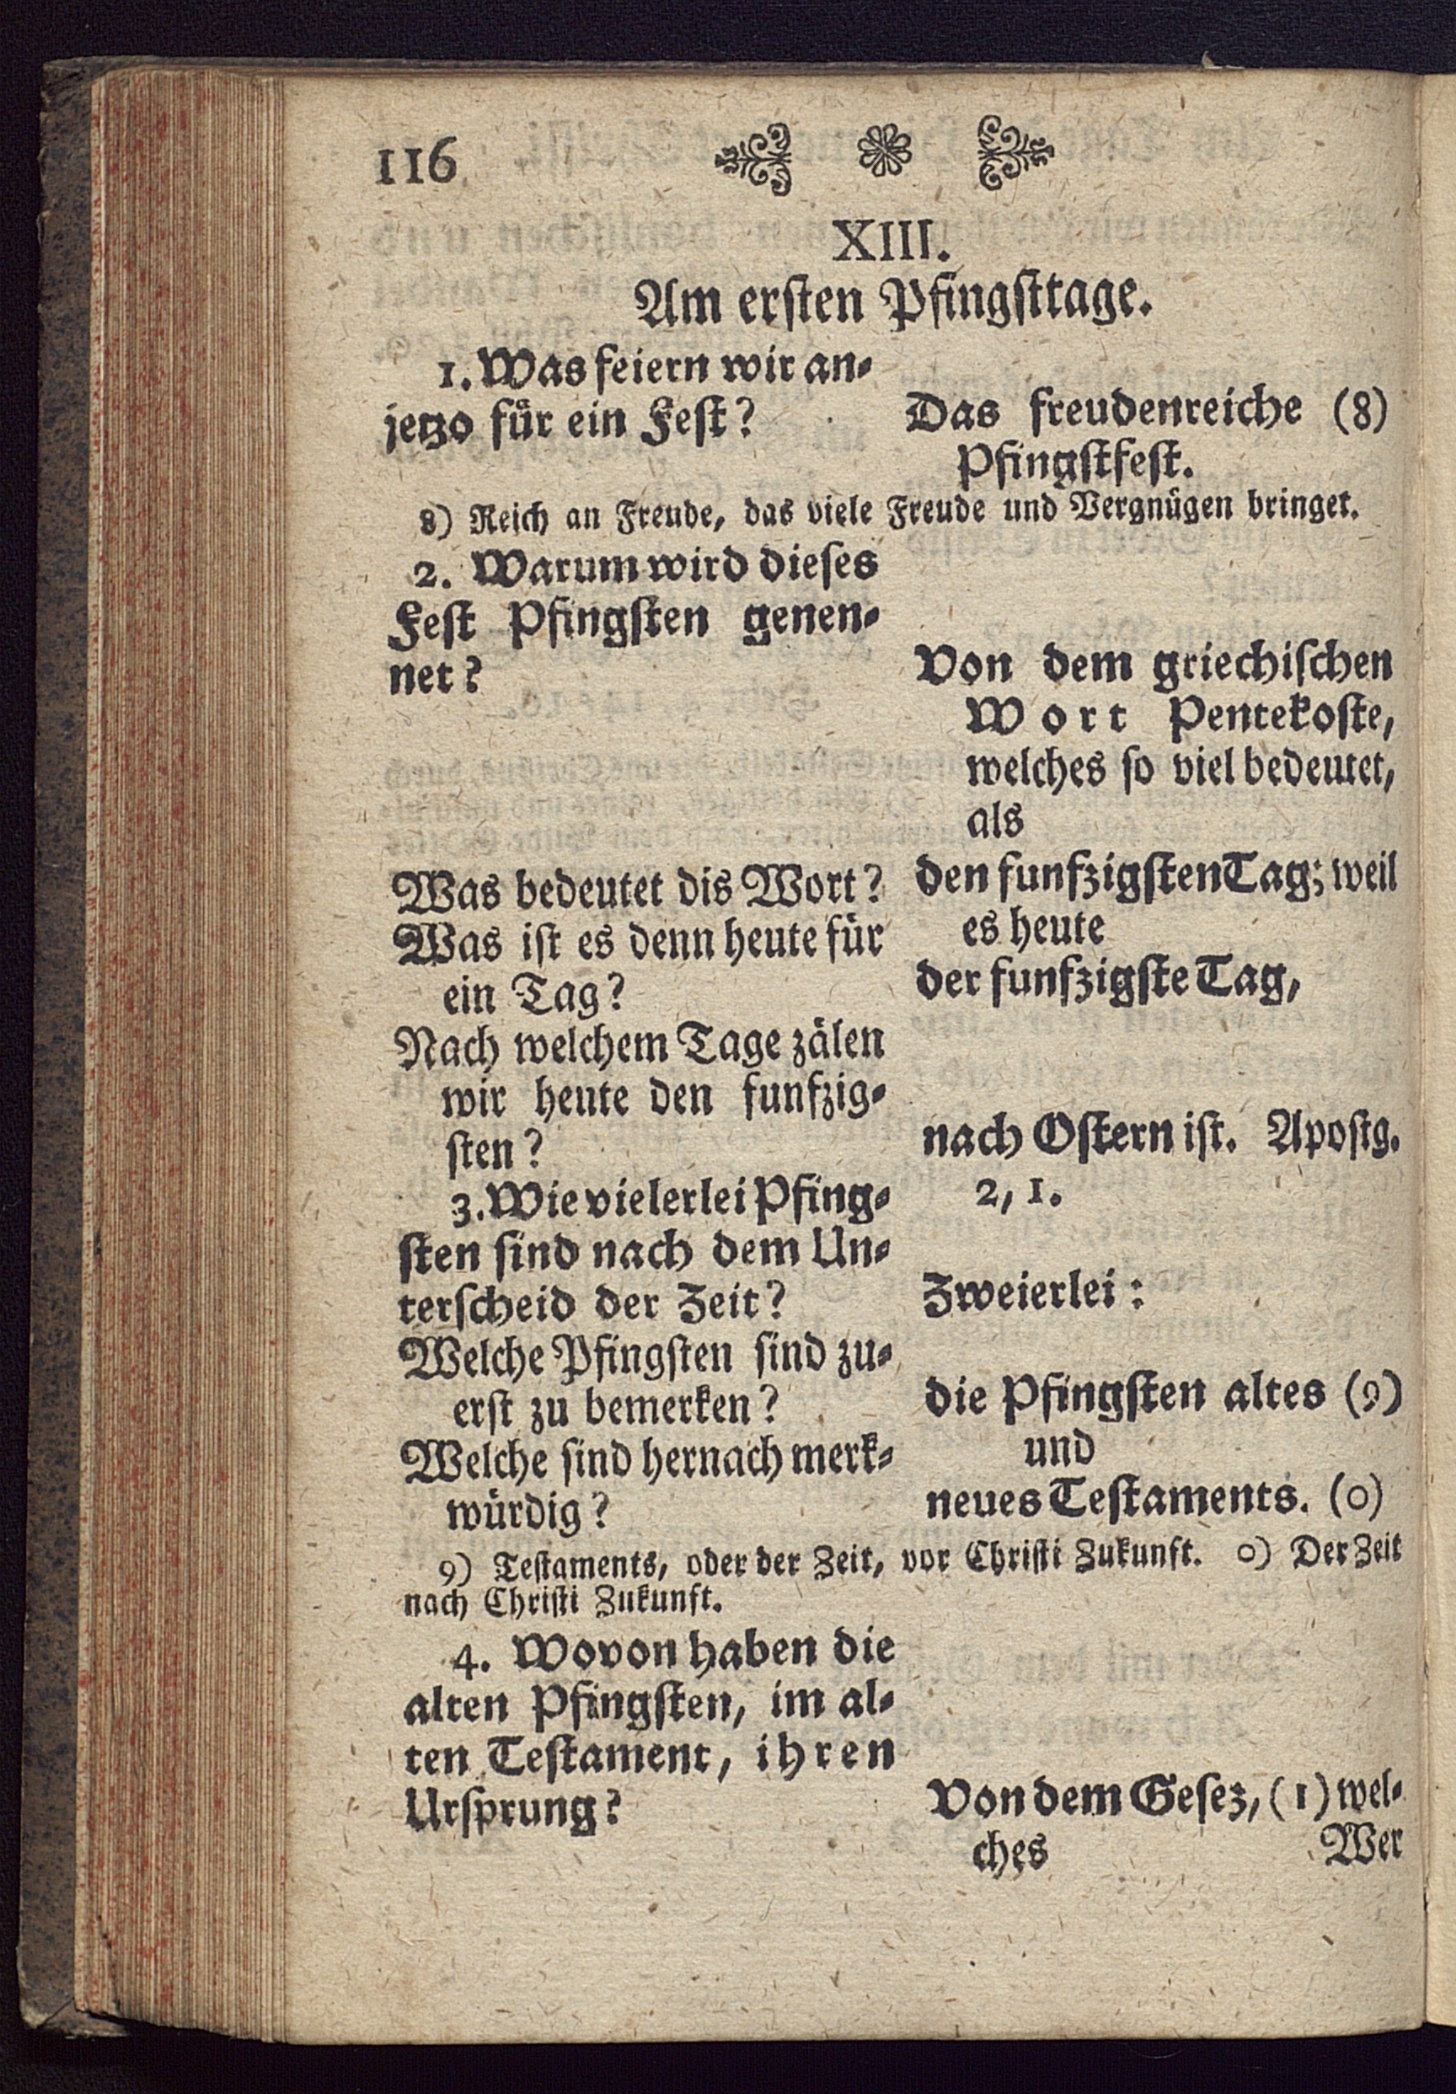 116
XIII.
Am ersten Pfingsttage.
1. Was feiern wir an-
jetzo für ein Fest?
Das freudenreiche (8)
Pfingstfest.
8) Reich an Freude, das viele Freude und Vergnügen bringet.
2. Warum wird dieses
Fest Pfingsten genen-
net?
Von dem griechischen
Wort Pentekoste,
welches so viel bedeutet,
als
Was bedeutet dis Wort?
den funfzigsten Tag; weil
es heute
Was ist es denn heute für
ein Tag?
der funfzigste Tag,
Nach welchem Tage zälen
wir heute den funfzig-
sten?
nach Ostern ist. Apostg.
2, 1.
3. Wie vielerlei Pfing-
sten sind nach dem Un-
terscheid der Zeit?
Zweierlei:
Welche Pfingsten sind zu-
erst zu bemerken?
die Pfingsten altes (9)
und
Welche sind hernach merk-
würdig?
neues Testaments. (0)
9) Testaments, oder der Zeit, vor Christi Zukunft. 0) Der Zeit
nach Christi Zukunft.
4. Wovon haben die
alten Pfingsten, im al-
ten Testament, ihren
Ursprung?
Von dem Gesez, (1) wel-
ches
Wer